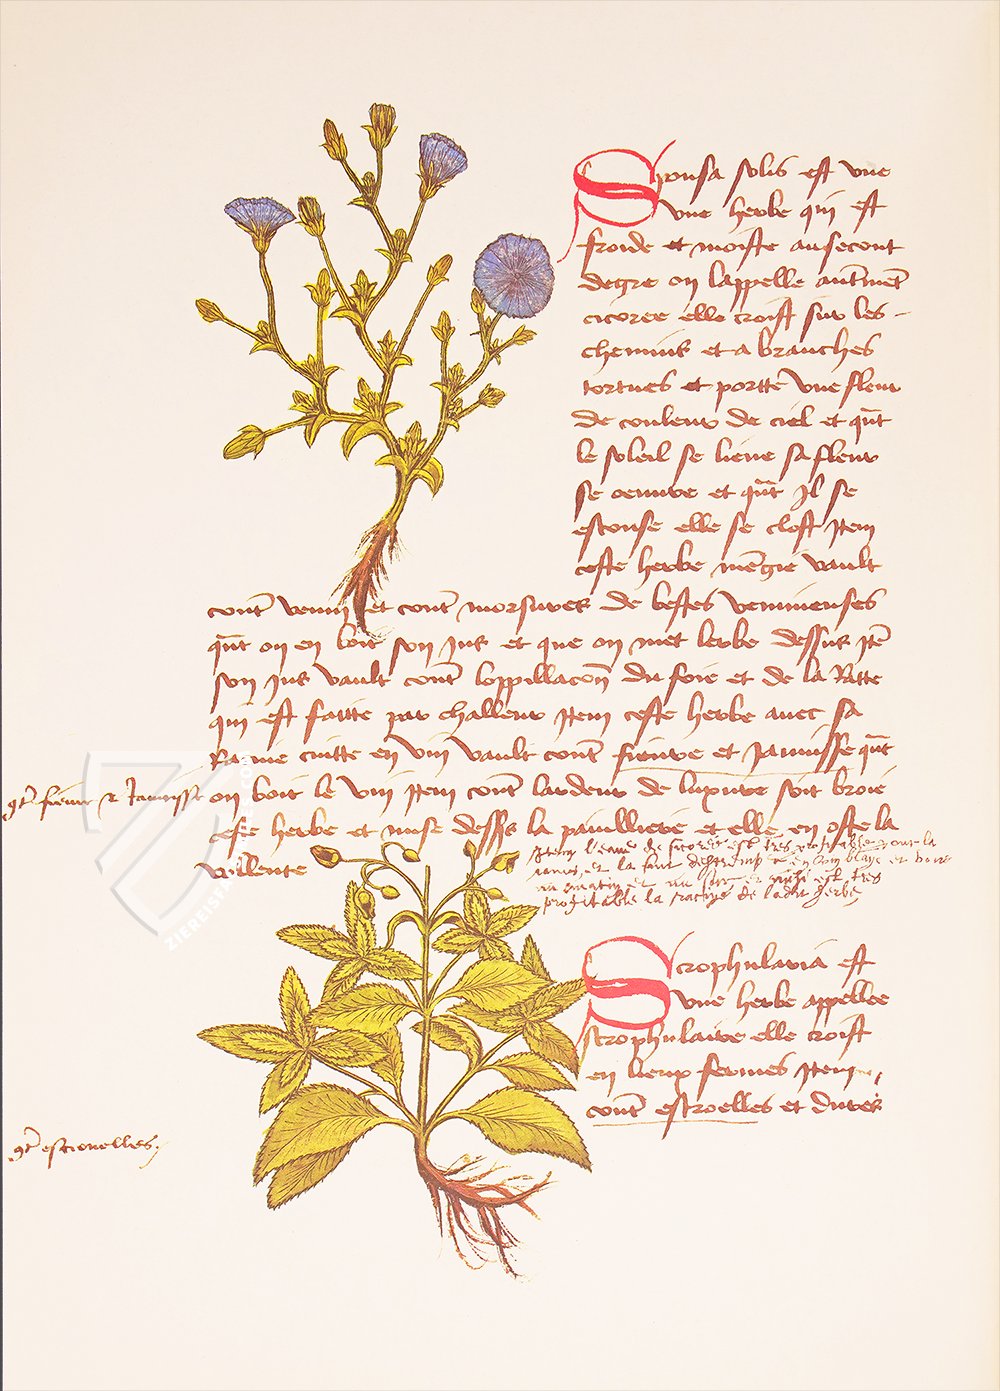 Sponsa solis est vne
vne herbe qui est
froide et moiste au secont
degre on lappelle autment
cicoree elle croist sur les
chemins et a branches
tortues et porte vne fleur
de couleur de ciel et qnt
le soleil se lieue sa fleur
se oeuure et qnt Il se
esconse elle se clost Item
ceste herbe mengie vault
contre venin et contre morsures de bestes venimeuses
qnt on en boit son Jus et que on met lerbe dessus Item
son Jus vault contre loppillacon du foie et de la Ratte
qui est faitte par challeur Item ceste herbe auec sa
Racine cuitte en vin vault contre fieuure et Jaunisse qnt
9tre fieure & Jaunisse
on boit le vin Item contre lardeur de luxure soit broie
ceste herbe et mise dessus la et elle en oste la
villente
Item l'eaue de est tres profitable pour la
et la faut et
au matin et au soir et est tres
profitable la racyne de ladit herbe
Scrophularia est
vne herbe appellee
scrophulaire elle croist
en lieux fermes Item
contre escroelles et dures
9tre escrouelles
ZIEREIS